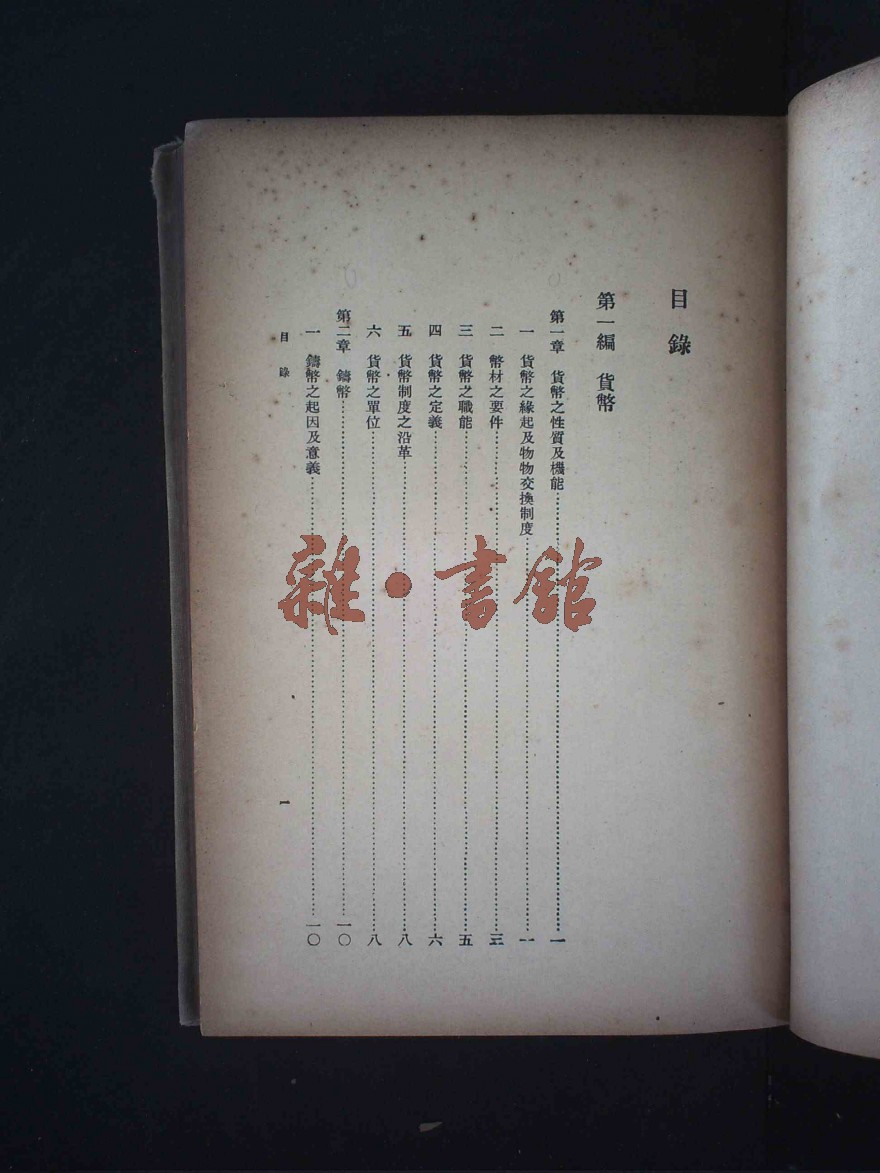 目錄
第一編　貨幣
第一章　貨幣之性質及機能……一
一　貨幣之緣起及物物交換制度……一
二　幣材之要件……三
三　貨幣之職能……五
四　貨幣之定義……六
五　貨幣制度之沿革……八
六　貨幣之單位……八
第二章　鑄幣……一〇
一　鑄幣之起因及意義……一〇
目錄
一
雜·書館